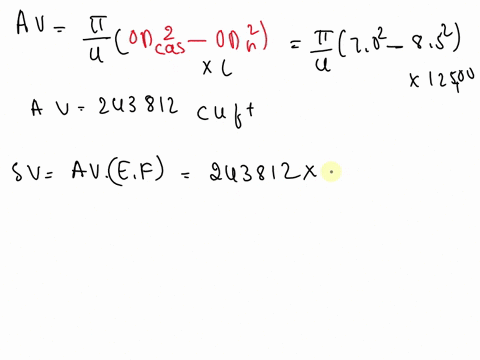 AV = π/4 (OD²cas − OD²h) × L = π/4 (7.0² − 8.5²) × 12500
AV = 243812 cuft
SV = AV.(E.F) = 243812 ×